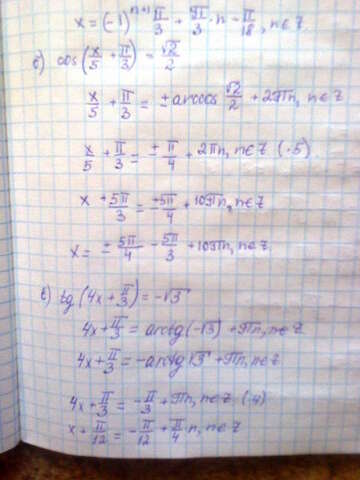 x = (-1)ⁿ⁺¹ π/3 + π/3 · n - π/18, n∈z.
б) cos(x/5 + π/3) = √2/2
x/5 + π/3 = ± arccos √2/2 + 2πn, n∈z
x/5 + π/3 = ± π/4 + 2πn, n∈z (·5)
x + 5π/3 = ± 5π/4 + 10πn, n∈z
x = ± 5π/4 - 5π/3 + 10πn, n∈z
в) tg(4x + π/3) = -√3
4x + π/3 = arctg(-√3) + πn, n∈z
4x + π/3 = -arctg √3 + πn, n∈z
4x + π/3 = -π/3 + πn, n∈z (:4)
x + π/12 = -π/12 + π/4 n, n∈z